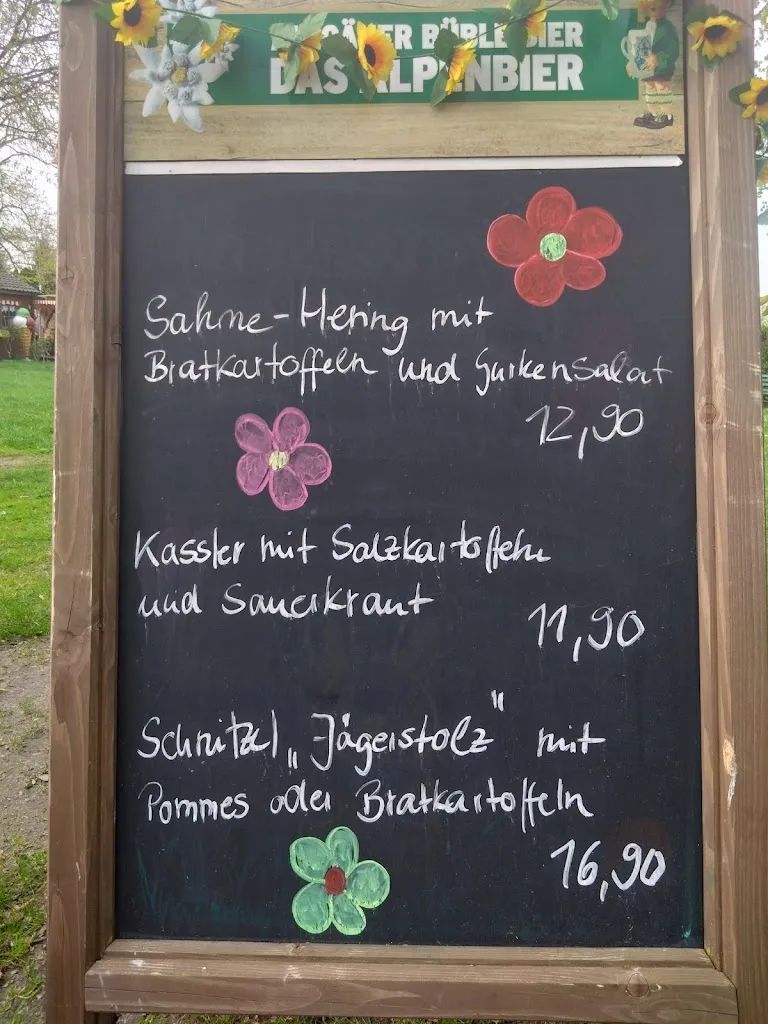 BÜRLE BIER
DAS ALPENBIER
Sahne-Hering mit
Bratkartoffeln und Gurkensalat
12,90
Kassler mit Salzkartoffeln
und Sauerkraut
11,90
Schnitzel „Jägerstolz" mit
Pommes oder Bratkartoffeln
16,90